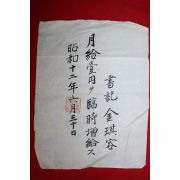 書記 金琪容
月給壹円ヲ臨時增給ス
昭和十二年六月三十日